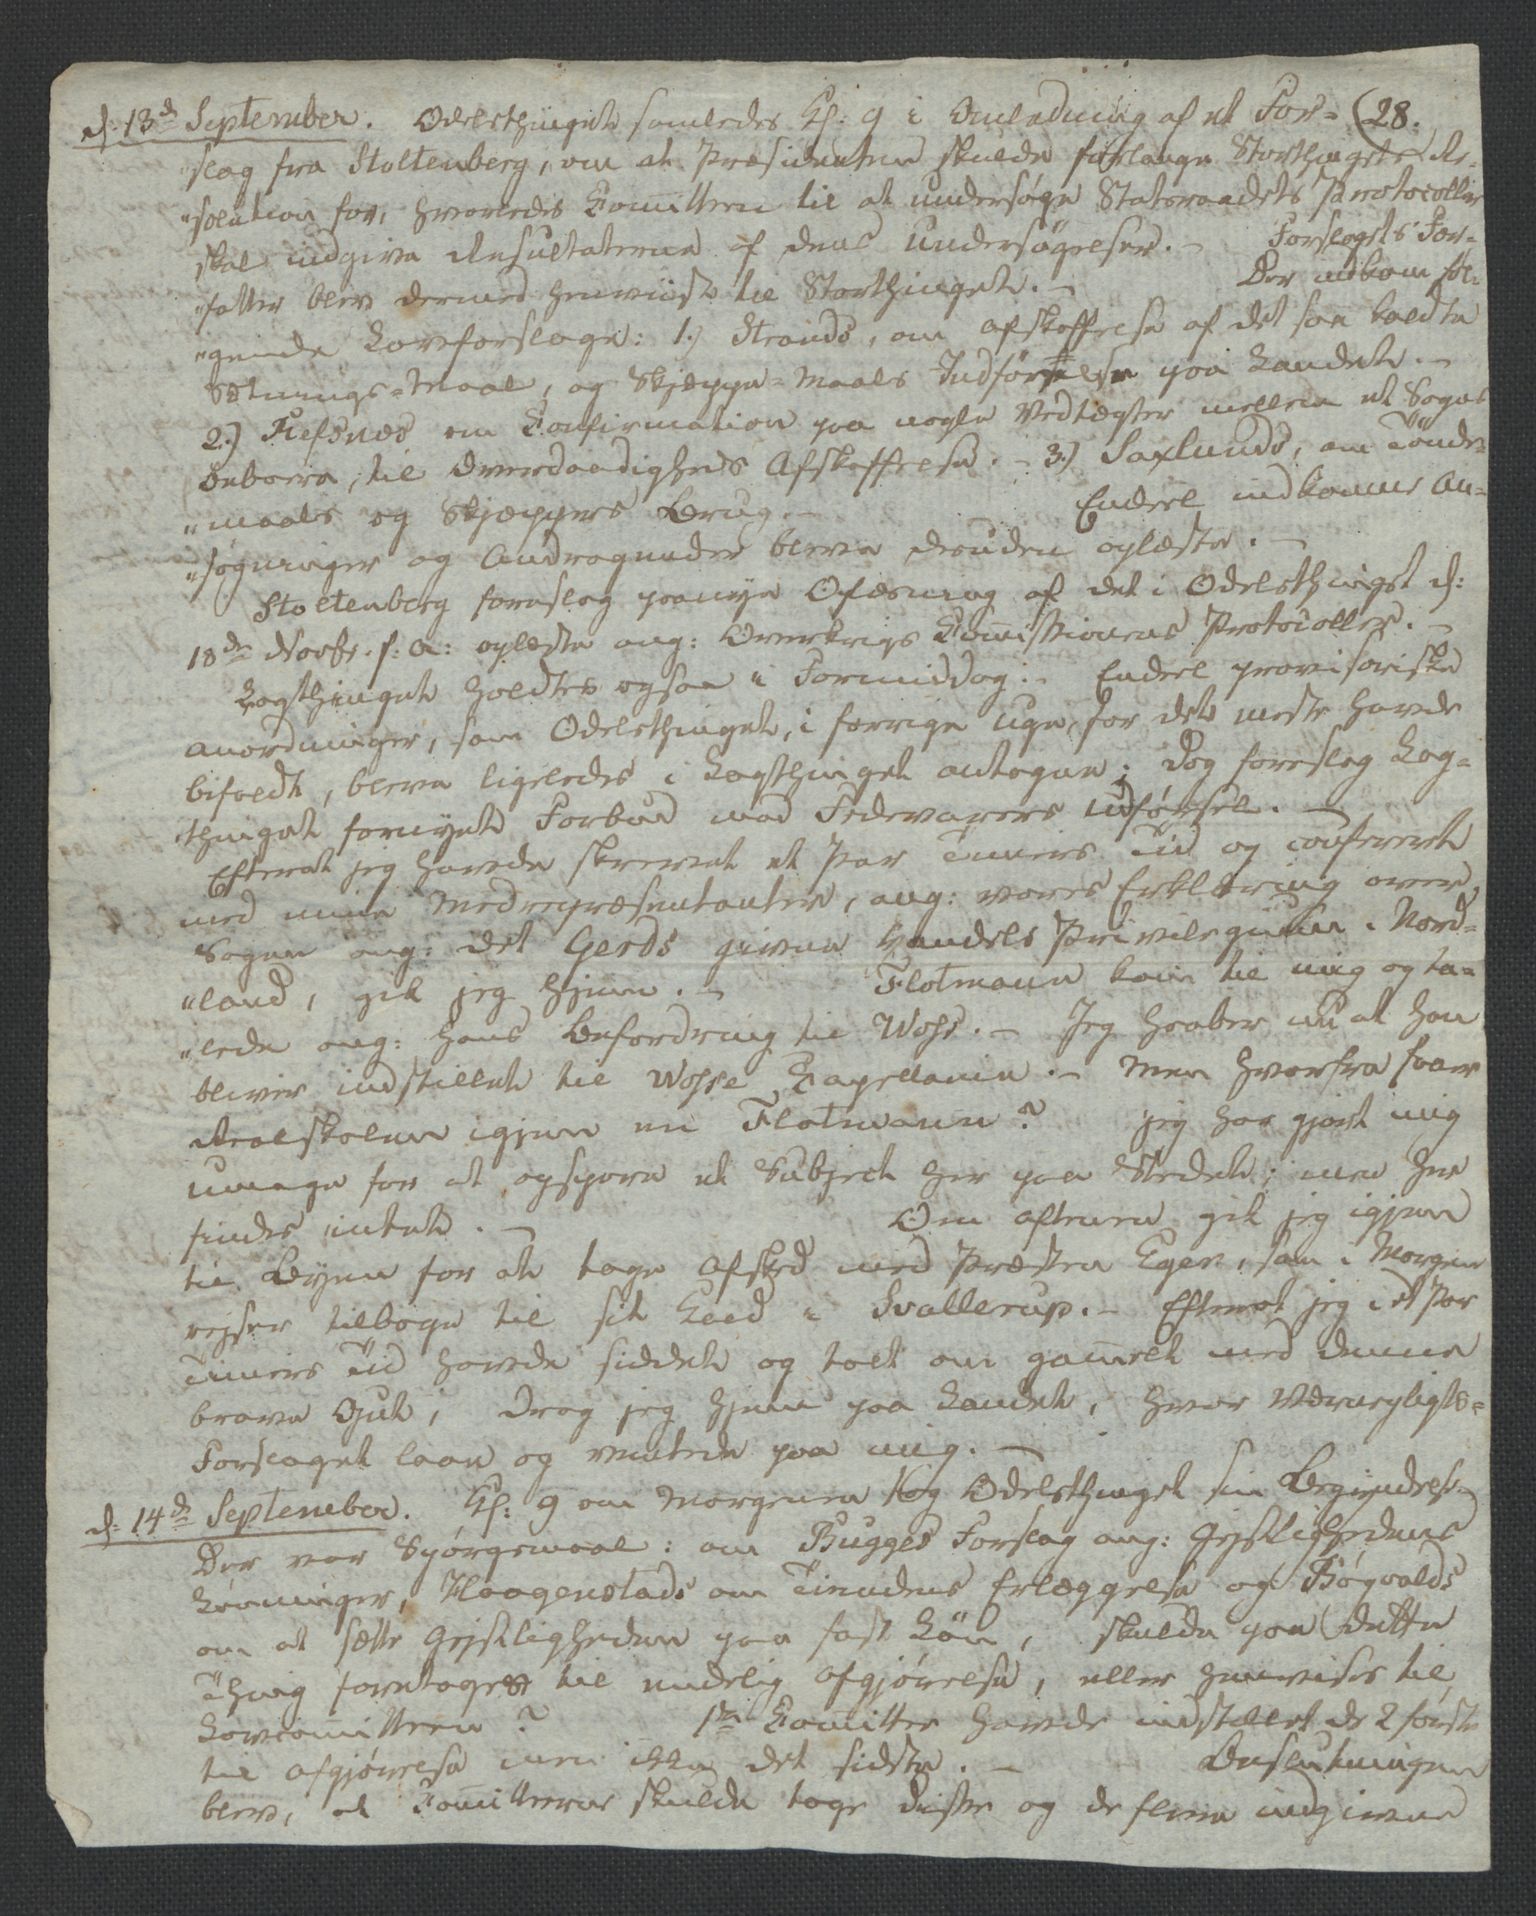 d. 13de September. Odelsthinget samledes Kl: 9 i Anledning af et For- (28.
"slag fra Stoltenberg, om at Præsidenten skulde forlange Storthingets Re-
"solution for, hvorledes Komitteen til at undersøge Statsraadets Protocoller
skal indgive Resultaterne af dens Undersøgelser. - Forslagets For-
"fatter blev dermed henviist til Storthinget. - Der indkom føl-
"gende Lovforslage: 1.) Strands, om Afskaffelse af det saa kaldte
Sætnings-Maal, og Skjeppe-Maals Indførelse paa Landet. -
2.) Refsnes om Confirmation paa nogle Vedtægter mellem et Sogns
Beboere, til Overdaadigheds Afskaffelse. - 3.) Saxlunds, om Tønde-
"maals og Skjeppers Brug. - Endeel indkomne An-
"søgninger og Andragender bleve desuden oplæste. -
Stoltenberg foreslog paanye Oplæsning af det i Odelsthinget d:
18de Novbr. f: A: oplæste ang: Overkrigs Commissionens Protocoller. -
Lagthinget holdtes ogsaa i Formiddag. - Endeel provisoriske
Anordninger, som Odelsthinget, i forrige Uge, for det meste havde
bifaldt, bleve ligeledes i Lagthinget antagne; Dog foreslog Lag-
thinget fornyet Forbud mod Fedevarers Udførsel. -
Efterat jeg havde skrevet et Par Timers Tid og confereret
med mine Medrepræsentanter, ang: vores Erklæring over
Sagen ang: det Gerds givne Handels Privilegium i Nord-
"land, gik jeg hjem. - Flotmann kom til mig og ta-
"lede ang: hans Befordring til Woss. - Jeg haaber nu at han
bliver indstillet til Wosse Capellanie. - Men hvorfra faaer
Realskolen igjen en Flotmann? jeg har gjort mig
Umage for at opspore et Subject her paa Stedet; men her
findes intet. - Om Aftenen gik jeg igjen
til Byen for at tage Afsked med Præsten Eger, som i Morgen
rejser tilbage til sit Kald i Svallerup. - Efterat jeg i et Par
Timers Tid havde siddet og talt om gammelt med denne
brave Gut, drog jeg hjem paa Landet, hvor Værnepligts-
Forslaget laae og ventede paa mig. -
d. 14de September. Kl: 9 om Morgenen tog Odelsthinget sin Begyndelse.
Der var Spørgsmaal: om Bugges Forslag ang: Gejstlighedens
Lønninger, Haagenstads om Tiendens Erlæggelse og Bøgvalds
om at sætte Gejstligheden paa fast Løn, skulde paa dette
Thing foretages til endelig Afgjørelse, eller henvises til
Lovcomitteen? 1ste Komittee havde indstillet de 2 første
til Afgjørelse men ikke det sidste. - Beslutningen
blev, at Komitteerne skulde tage disse og de flere indgivne